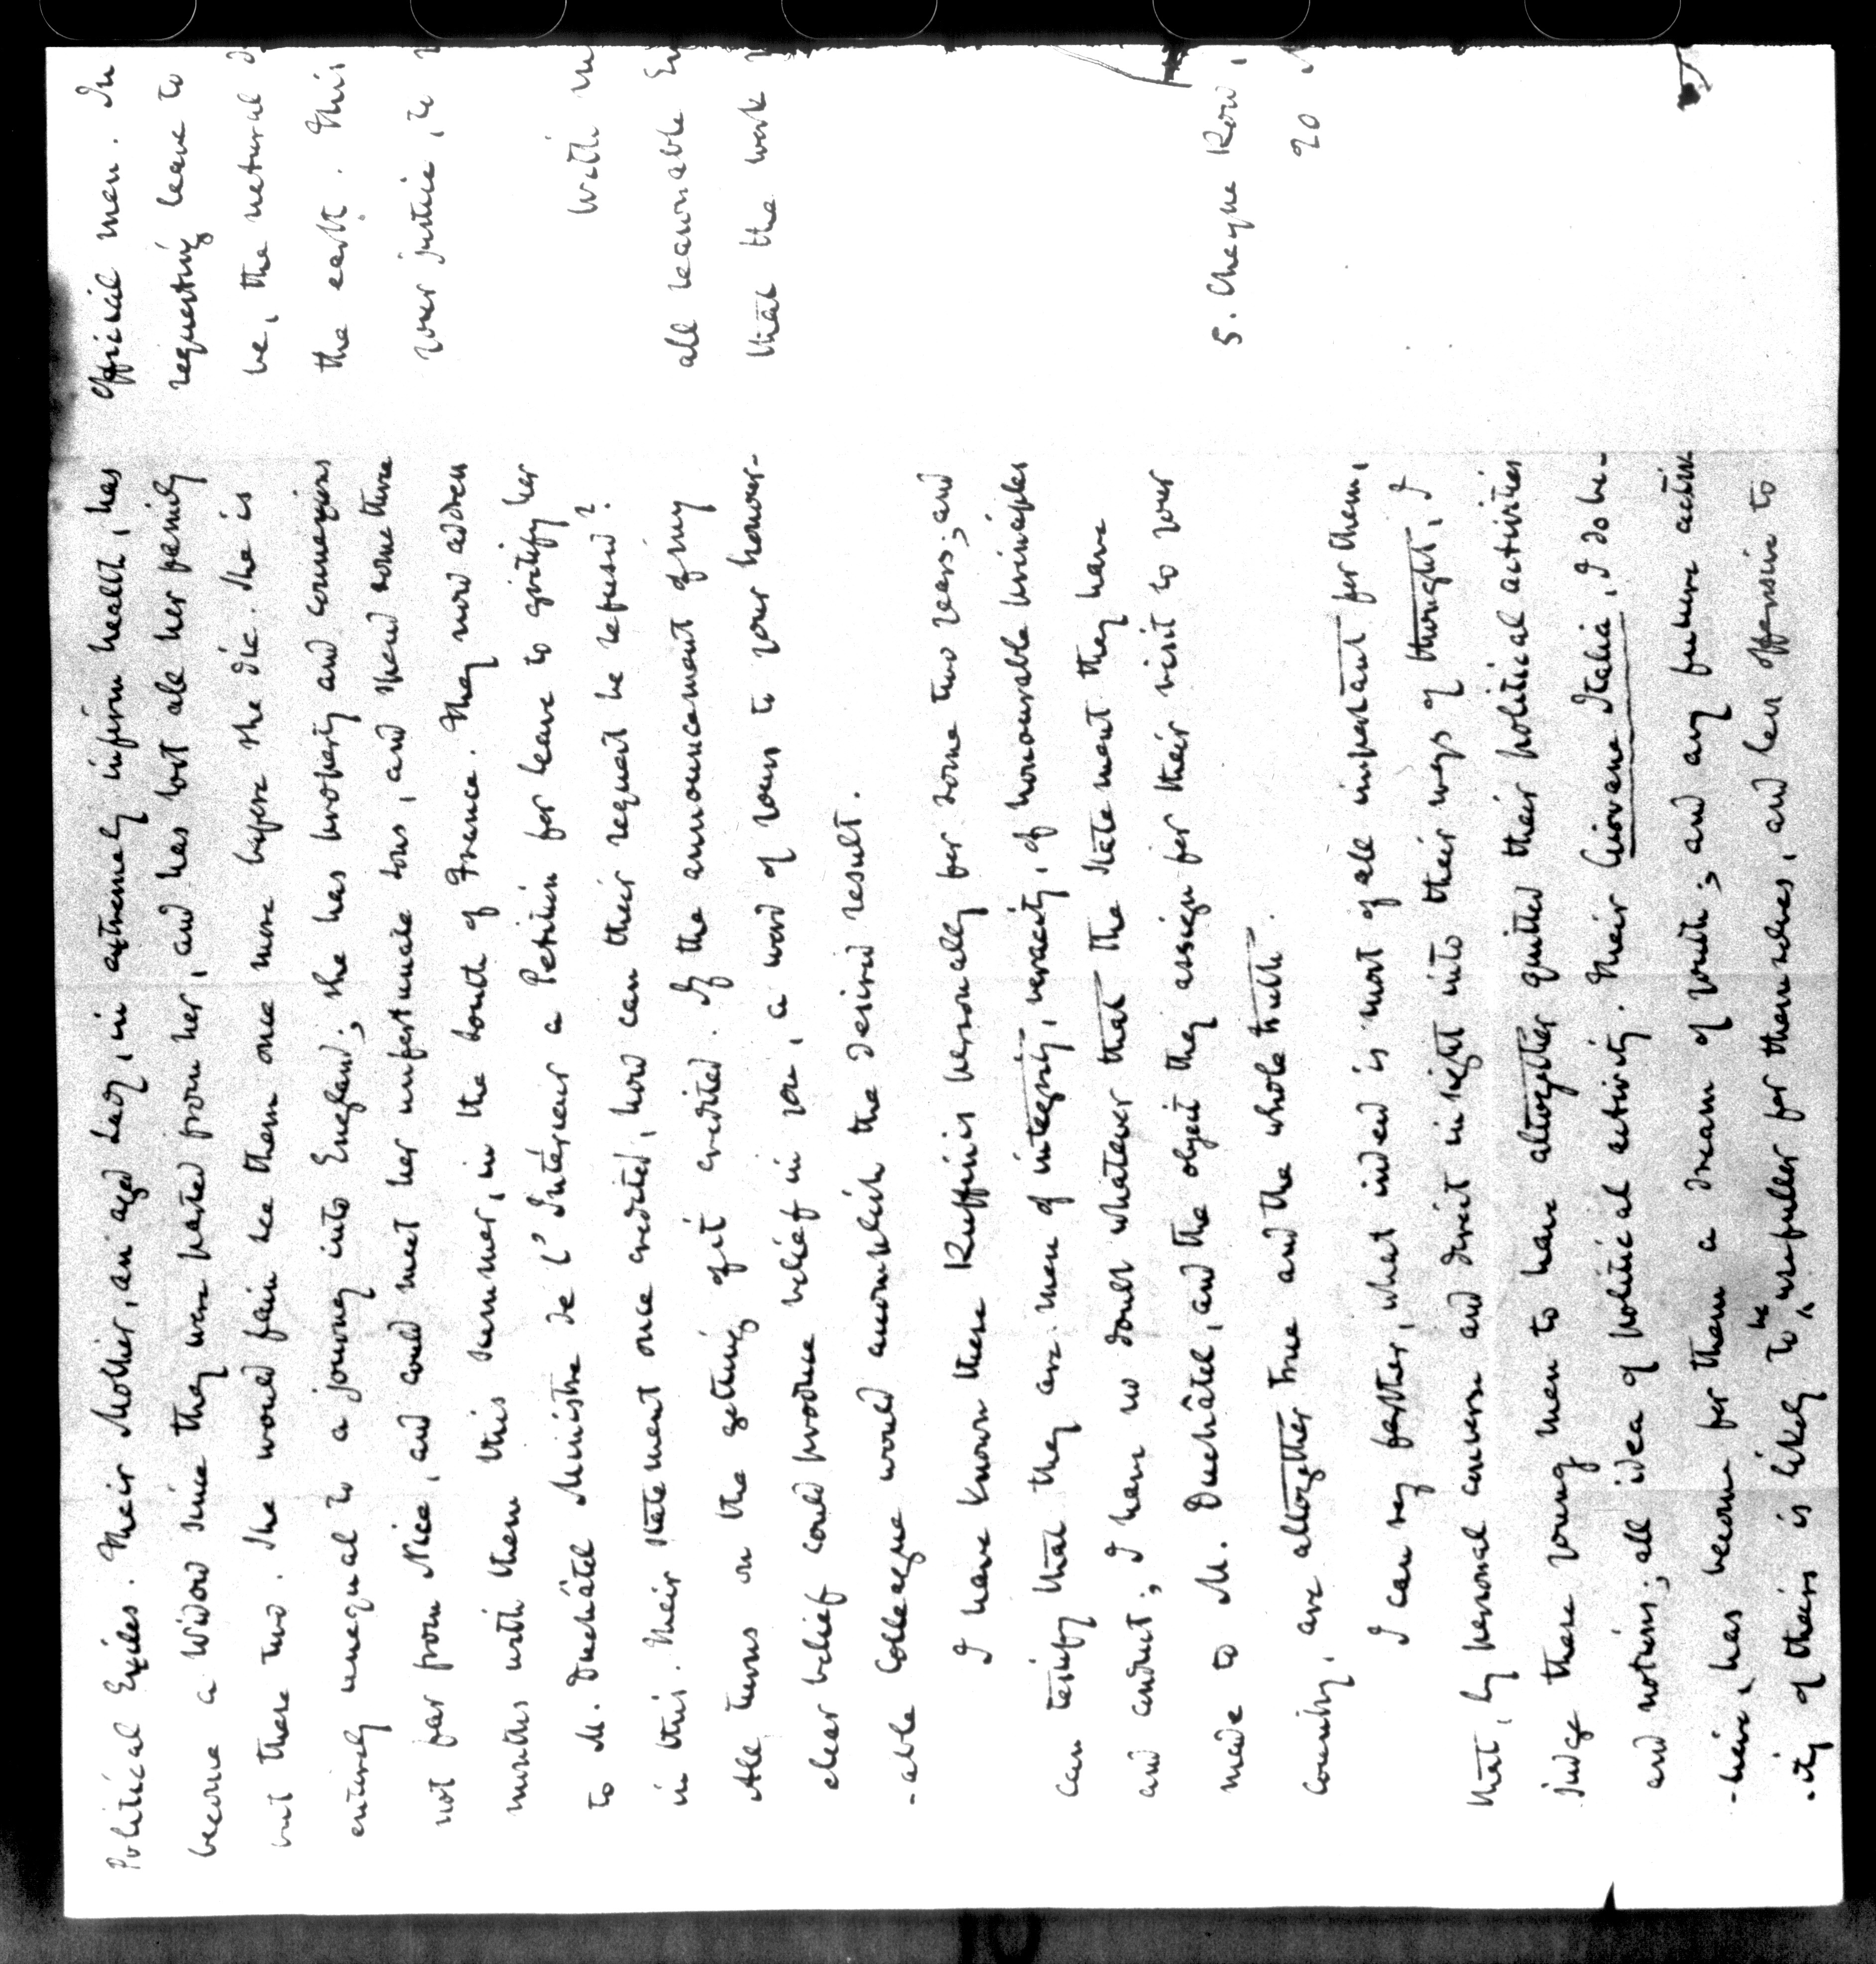 Political Exiles. Their Mother, an aged Lady, in extremely infirm health, has
become a Widow since they were parted from her, and has lost all her family
but these two. She would fain see them once more before she die. She is
entirely unequal to a journey into England; she has property and connexions
not far from Nice, and could meet her unfortunate sons, and spend some three
months with them this summer, in the South of France. They now address
to M. Duchâtel Ministre de l'Intérieur a Petition for leave to gratify her
in this. Their statement once credited, how can their request be refused?
All turns on the getting of it credited. If the announcement of my
clear belief could produce belief in you, a word of yours to your honour-
-able Colleague would accomplish the desired result.
I have known these Ruffinis personally for some two years; and
can testify that they are men of integrity, veracity, of honourable principles
and conduct; I have no doubt whatever that the statement they have
made to M. Duchâtel, and the object they assign for their visit to your
country, are altogether true and the whole truth.
I can say farther, what indeed is most of all important for them,
that, by personal converse and direct insight into their ways of thought, I
judge these young men to have altogether quitted their political activities
and notions; all idea of political activity. Their Giovane Italia, I do be-
-lieve, has become for them a dream of youth; and any future activ
-ity of theirs is likely to be usefuller for themselves, and less offensive to
official men. In
requesting leave to
be, the natural
the east. This
your justice, to
With
all reasonable
that the work
5. Cheyne Row,
20